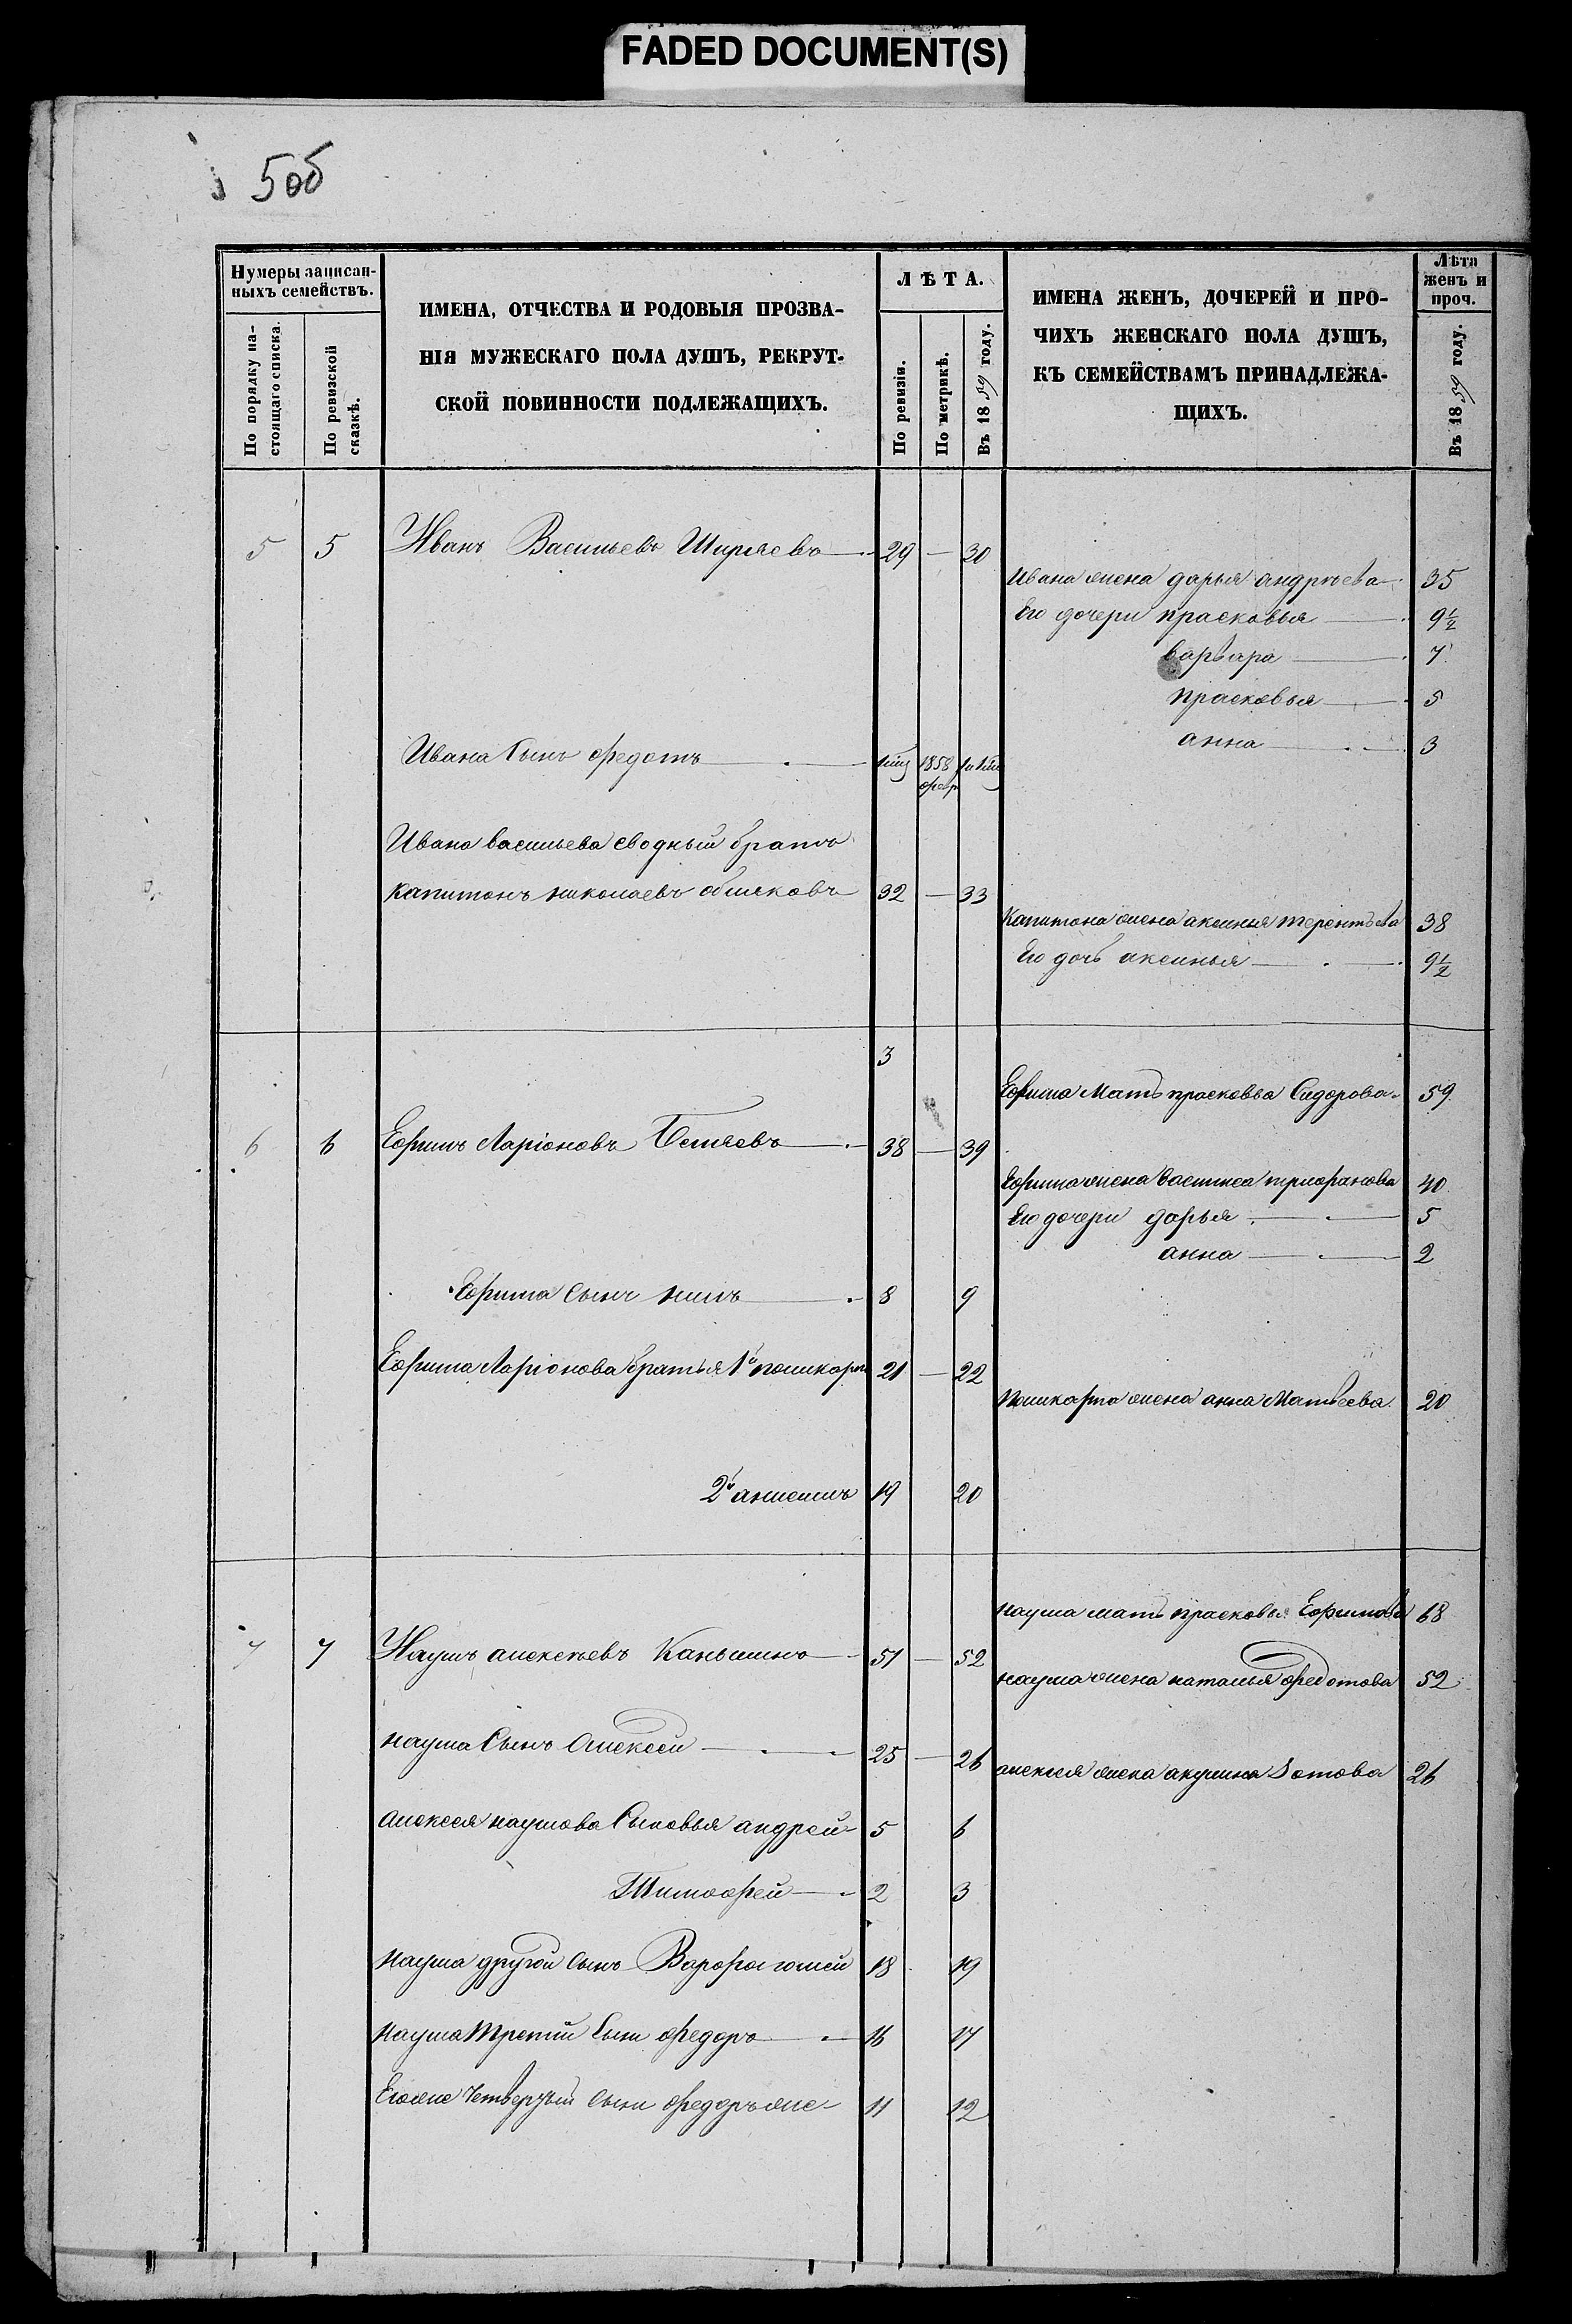 FADED DOCUMENT(S)
5об
Нумеры записан-
ныхъ семействъ.
По порядку на-
стоящаго списка.
По ревизской
сказкѣ.
ИМЕНА, ОТЧЕСТВА И РОДОВЫЯ ПРОЗВА-
НІЯ МУЖЕСКАГО ПОЛА ДУШЪ, РЕКРУТ-
СКОЙ ПОВИННОСТИ ПОДЛЕЖАЩИХЪ.
ЛѢТА.
По ревизіи.
По метрикѣ.
Въ 1859 году.
ИМЕНА ЖЕНЪ, ДОЧЕРЕЙ И ПРО-
ЧИХЪ ЖЕНСКАГО ПОЛА ДУШЪ,
КЪ СЕМЕЙСТВАМЪ ПРИНАДЛЕЖА-
ЩИХЪ.
Лѣта
женъ и
проч.
Въ 1859 году.
5 5 Иванъ Васильевъ Ширяевъ 29 — 30
Ивана жена дарья андрѣева 35
Его дочери прасковья 9½
варвара 7
прасковья 5
анна 3
Ивана Сынъ федотъ 1858 февр
Ивана васильева сводный братъ
капитонъ николаевъ 32 — 33
Капитона жена аксинья терентьева 38
Его дочь аксинья 9½
3
Ефима Мать прасковья Сидорова 59
6 6 Ефимъ Ларіоновъ Беляевъ 38 — 39
Ефима жена василиса трифанова 40
Его дочери дарья 5
анна 2
Ефима Сынъ нилъ 8 9
Ефима Ларіонова братья 1й поликарпъ 21 — 22
Поликарпа жена анна Матвеева 20
2й анисимъ 19 20
наума мать прасковья Ефимова 68
7 7 Наумъ алексѣевъ Каньшинъ 51 — 52
наума жена наталья федотова 52
наума Сынъ Алексей 25 — 26
алексея жена акулина Зотова 26
алексея наумова Сыновья андрей 5 6
Тимофей 2 3
наума другой сынъ Варфоломей 18 19
наума Третий Сын федоръ 16 17
Егоже Четвертый сын федоръ же 11 12